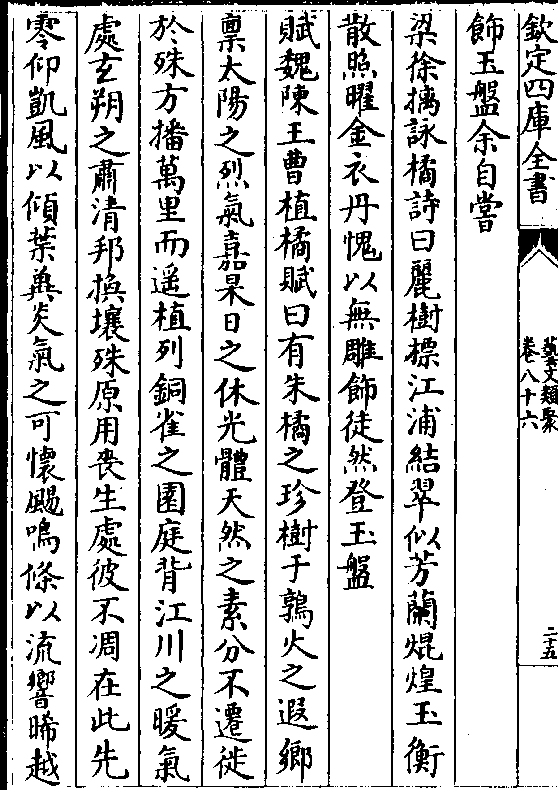 欽定四庫全書
藝文類聚
卷八十六
二十五
飾玉盤余自嘗
梁徐摛詠橘詩曰麗樹標江浦結翠似芳蘭焜煌玉衡
散照曜金衣丹愧以無雕飾徒然登玉盤
賦魏陳王曹植橘賦曰有朱橘之珍樹于鶉火之遐鄉
稟太陽之烈氣嘉杲日之休光體天然之素分不遷徙
於殊方播萬里而遥植列銅雀之園庭背江川之暖氣
處玄朔之肅清邦換壤殊原用喪生處彼不凋在此先
零仰凱風以傾葉冀炎氣之可懷颺鳴條以流響晞越